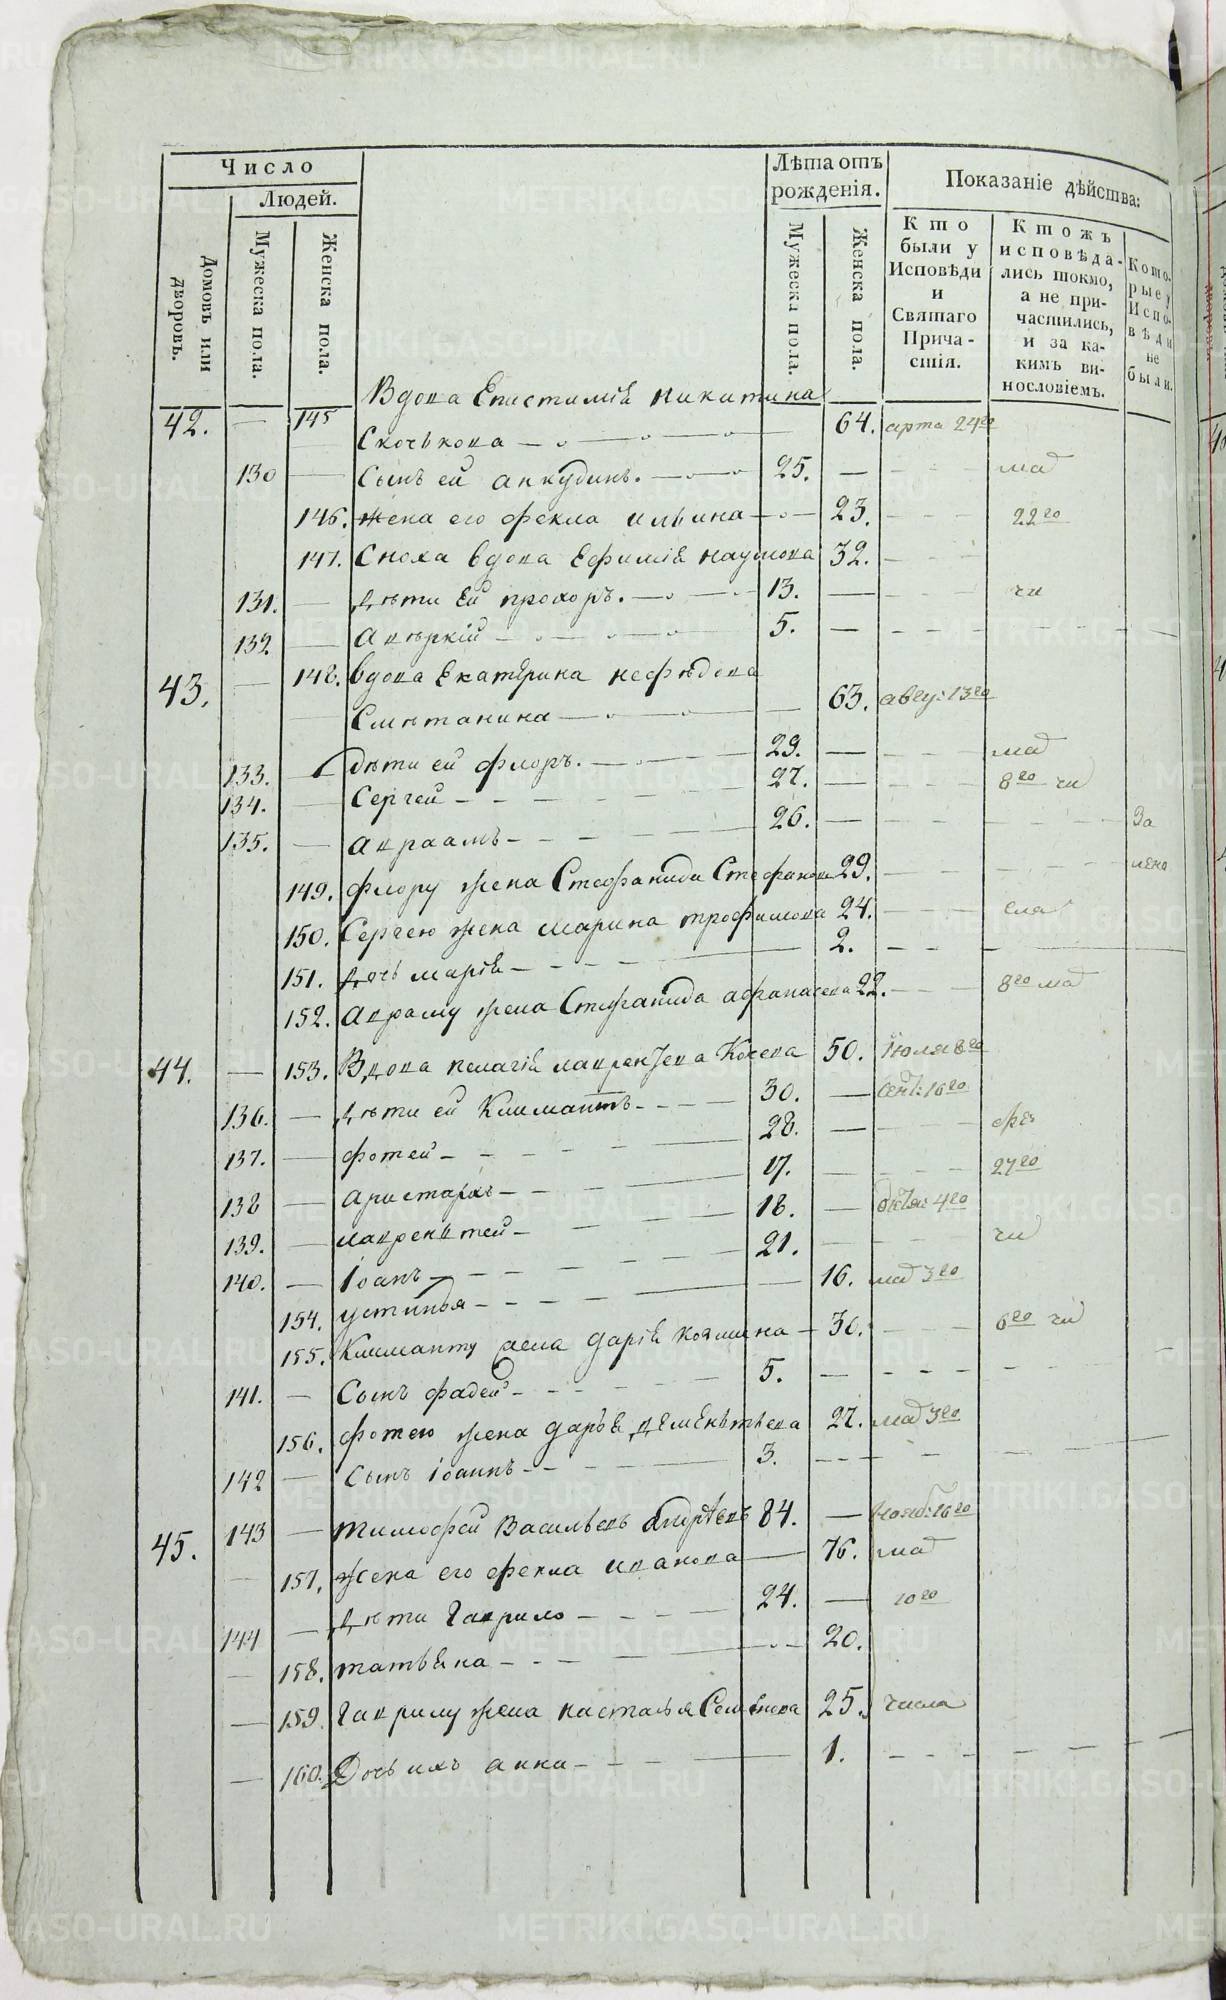 Число
Людей.
Домовъ или дворовъ.
Мужеска пола.
Женска пола.
Лѣта отъ рожденія.
Мужеска пола.
Женска пола.
Показаніе дѣйства:
Кто были у Исповѣди и Святаго Причастія.
Ктожъ исповѣдались токмо, а не причастились, и за какимъ винословіемъ.
Которые у Исповѣди не были.
Вдова Епистимія Никитина
42. — 145 Скочкова — 64. арта 24го
130 — Сынъ ей анкудинъ. — 25. — маія
146. Жена его фекла ильина — 23. 22го
147. Сноха вдова Ефимія наумова 32.
131. — Дѣти Ей прохоръ. — 13. — чи
132 — Аверкій — 5. —
43. — 148. вдова Екатерина нефедова
Смѣтанина — 63. авгу: 13го
133. — дѣти ей флоръ. — 29. — маія
134. — Сергей — 27. — 8го чи
135. — авраамъ — 26. —
149. флору жена Стефанида Стефанова 29.
150. Сергею жена марина трофимова 24. сла
151. дочь марія — 2.
152. авраму жена Стефанида афанасева 22. 8го маія
44. — 153. Вдова пелагія лаврентева 50. Іюля 8го
136. — дѣти ей Климантъ — 30. — Сент: 16го
137. — фотей — 28. — фев
138 — аристархъ — 17. 27го
139. — лаврентей — 18. — Октя: 4го
140. — Іоанъ — 21. чи
154. устинья — 16. маія 3го
155. Климанту жена дарія 30. 6го чи
141. — Сынъ фадей — 5. —
156. фотею жена дарья дементьева 27. маія 3го
142 — Сынъ іоаннъ — 3.
45. 143 — тимофей Васильевъ 84. — Нояб: 16го
157. жена его фекла иванова — 76. маія
144 — Дѣти Гаврило — 24. — 10го
158. татьяна — 20.
159. Гаврилу жена настасья Семенова 25. числа
160. Дочь ихъ анна — 1.
METRIKI.GASO-URAL.RU